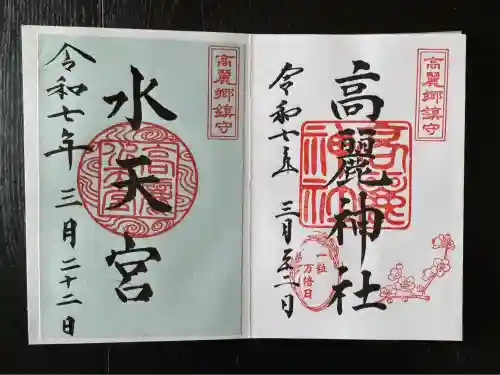 高麗郷鎮守
高麗神社
令和七年 三月二十二日
一粒
万倍日
高麗郷鎮守
水天宮
令和七年 三月二十二日